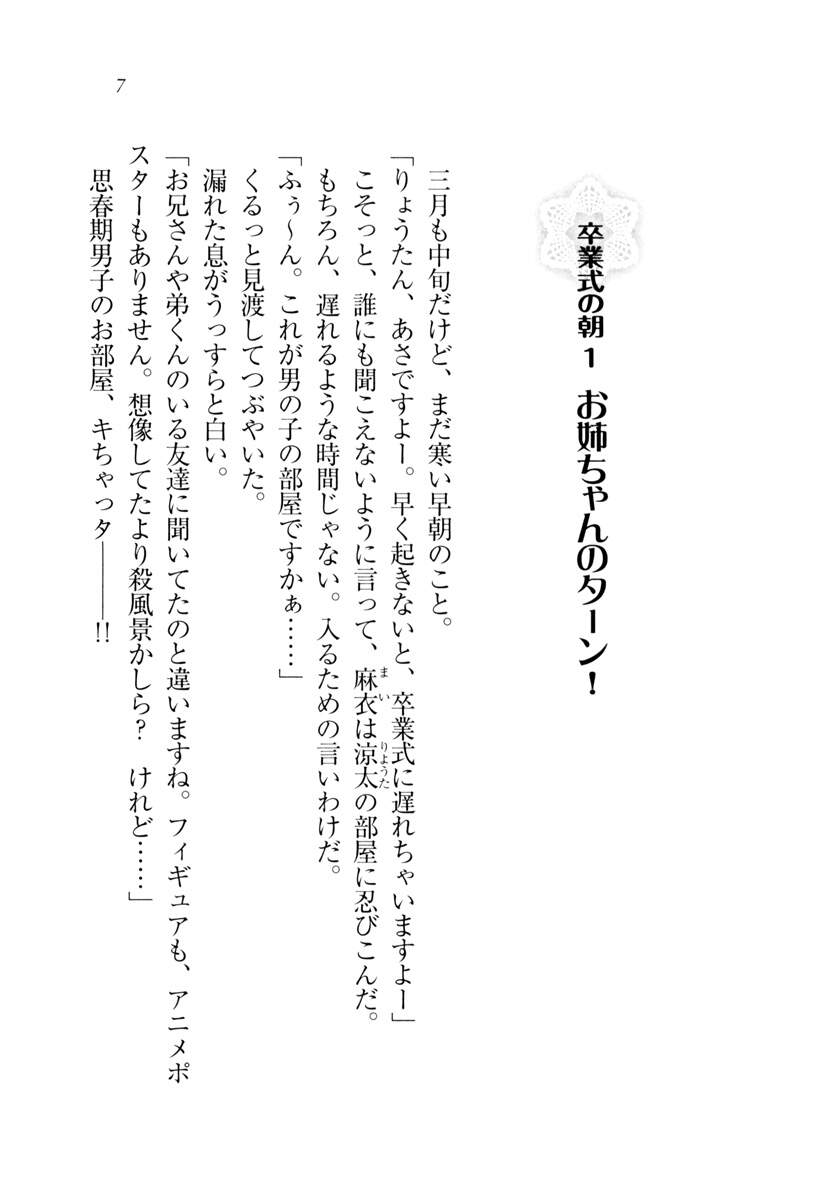 7
卒業式の朝１　お姉ちゃんのターン！
三月も中旬だけど、まだ寒い早朝のこと。
「りょうたん、あさですよー。早く起きないと、卒業式に遅れちゃいますよー」
こそっと、誰にも聞こえないように言って、麻衣は涼太の部屋に忍びこんだ。
まい
りょうた
もちろん、遅れるような時間じゃない。入るための言いわけだ。
「ふぅ～ん。これが男の子の部屋ですかぁ……」
くるっと見渡してつぶやいた。
漏れた息がうっすらと白い。
「お兄さんや弟くんのいる友達に聞いてたのと違いますね。フィギュアも、アニメポ
スターもありません。想像してたより殺風景かしら？　けれど……」
思春期男子のお部屋、キちゃっタ――――!!